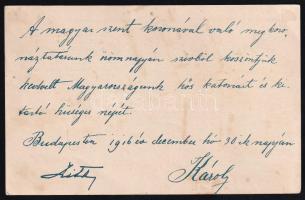 A magyar szent koronával való megkoro-
náztatásunk örömnapján szívből köszöntjük
kedvelt Magyarországunk hős katonáit és ki-
tartó hűséges népét.
Budapesten 1916 évi december hó 30-ik napján
Zita Károly